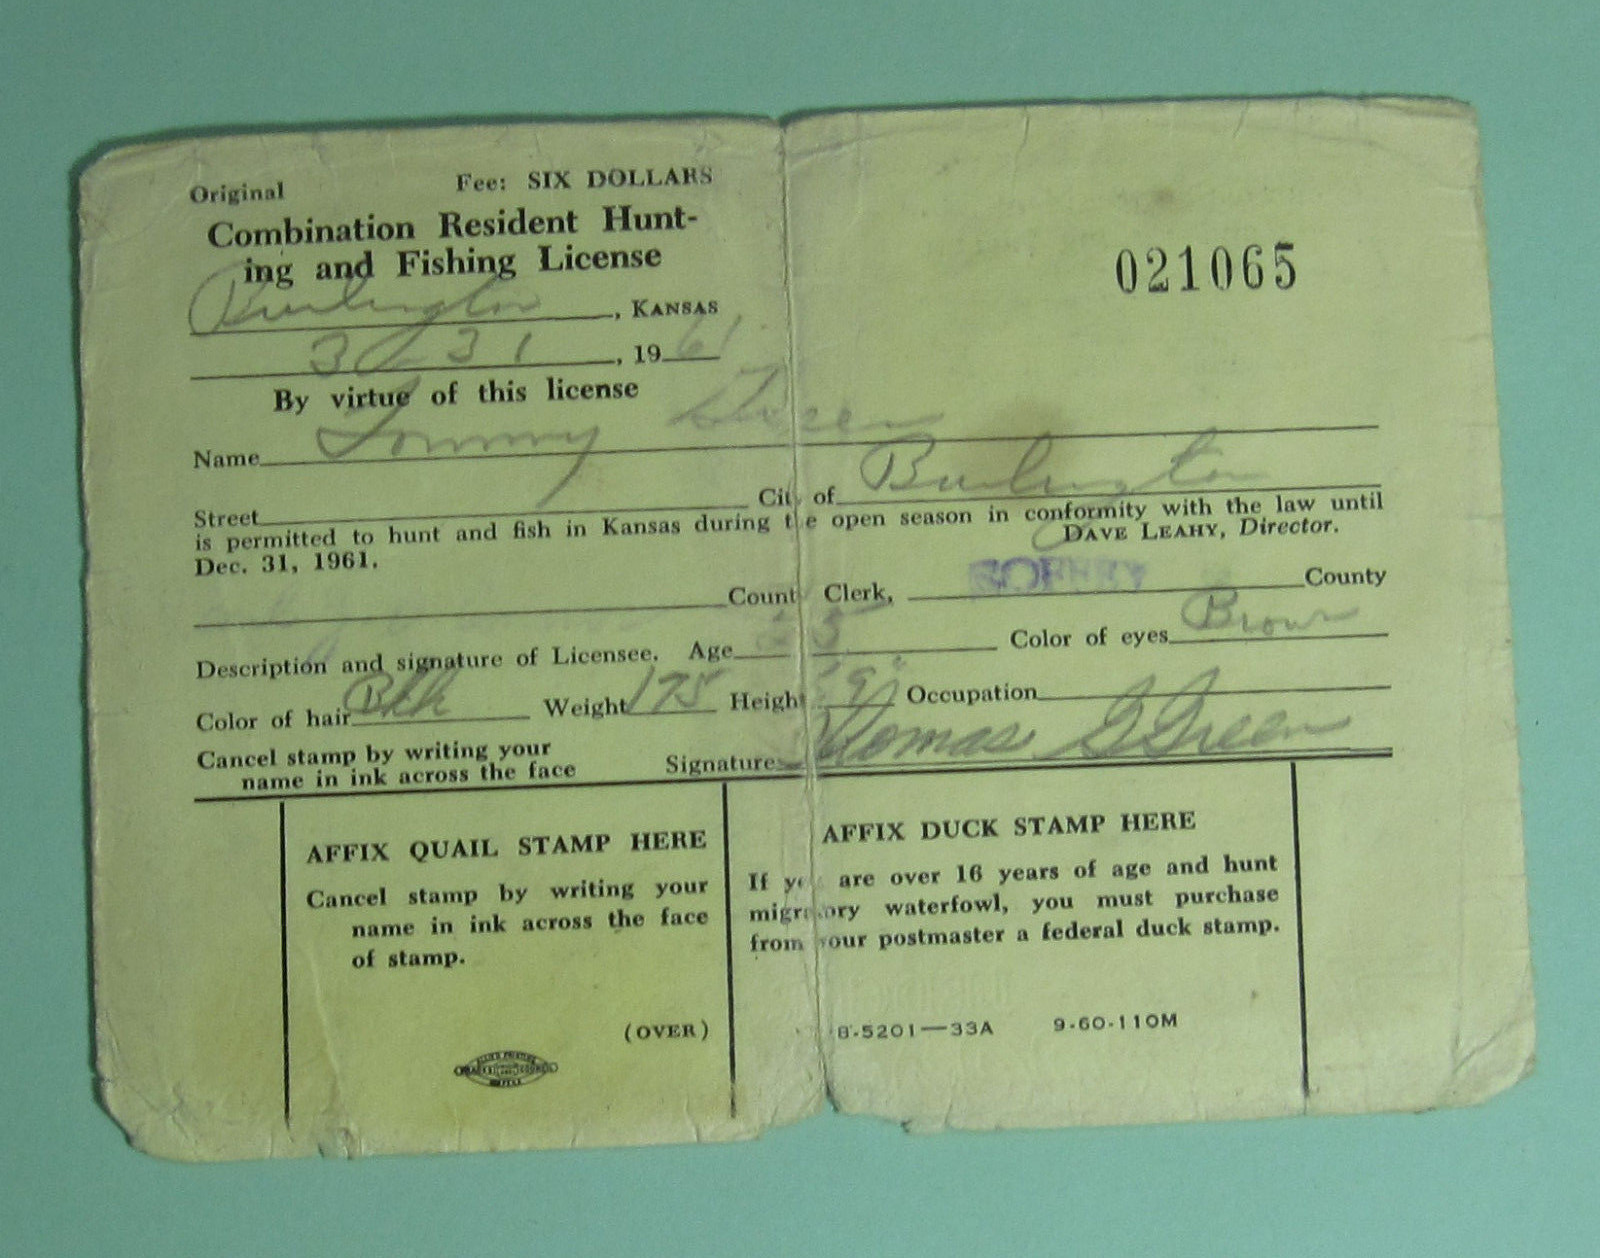 Original Fee: SIX DOLLARS
Combination Resident Hunt-
ing and Fishing License
Burlington, KANSAS
3-31, 1961
021065
By virtue of this license
Name Tommy Green
Street City of Burlington
is permitted to hunt and fish in Kansas during the open season in conformity with the law until
Dec. 31, 1961. DAVE LEAHY, Director.
County Clerk, COFFEY County
Description and signature of Licensee. Age Color of eyes Brown
Color of hair Blk Weight 175 Height Occupation
Cancel stamp by writing your
name in ink across the face Signature Thomas G Green
AFFIX QUAIL STAMP HERE
Cancel stamp by writing your
name in ink across the face
of stamp.
(OVER)
AFFIX DUCK STAMP HERE
If you are over 16 years of age and hunt
migratory waterfowl, you must purchase
from your postmaster a federal duck stamp.
8-5201—33A 9-60-110M